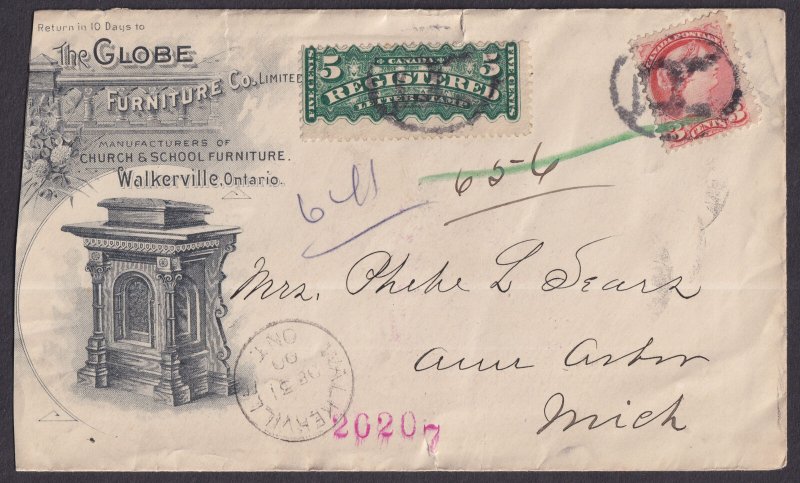 Return in 10 Days to
The GLOBE
FURNITURE Co., LIMITED
MANUFACTURERS OF
CHURCH & SCHOOL FURNITURE.
Walkerville, Ontario.
CANADA
5 REGISTERED 5
LETTER STAMP
FIVE CENTS
FIVE CENTS
CANADA POSTAGE
3 CENTS 3
656
Mrs. Phebe L Sears
Ann Arbor
Mich
WALKERVILLE
ONT
31
90
20207